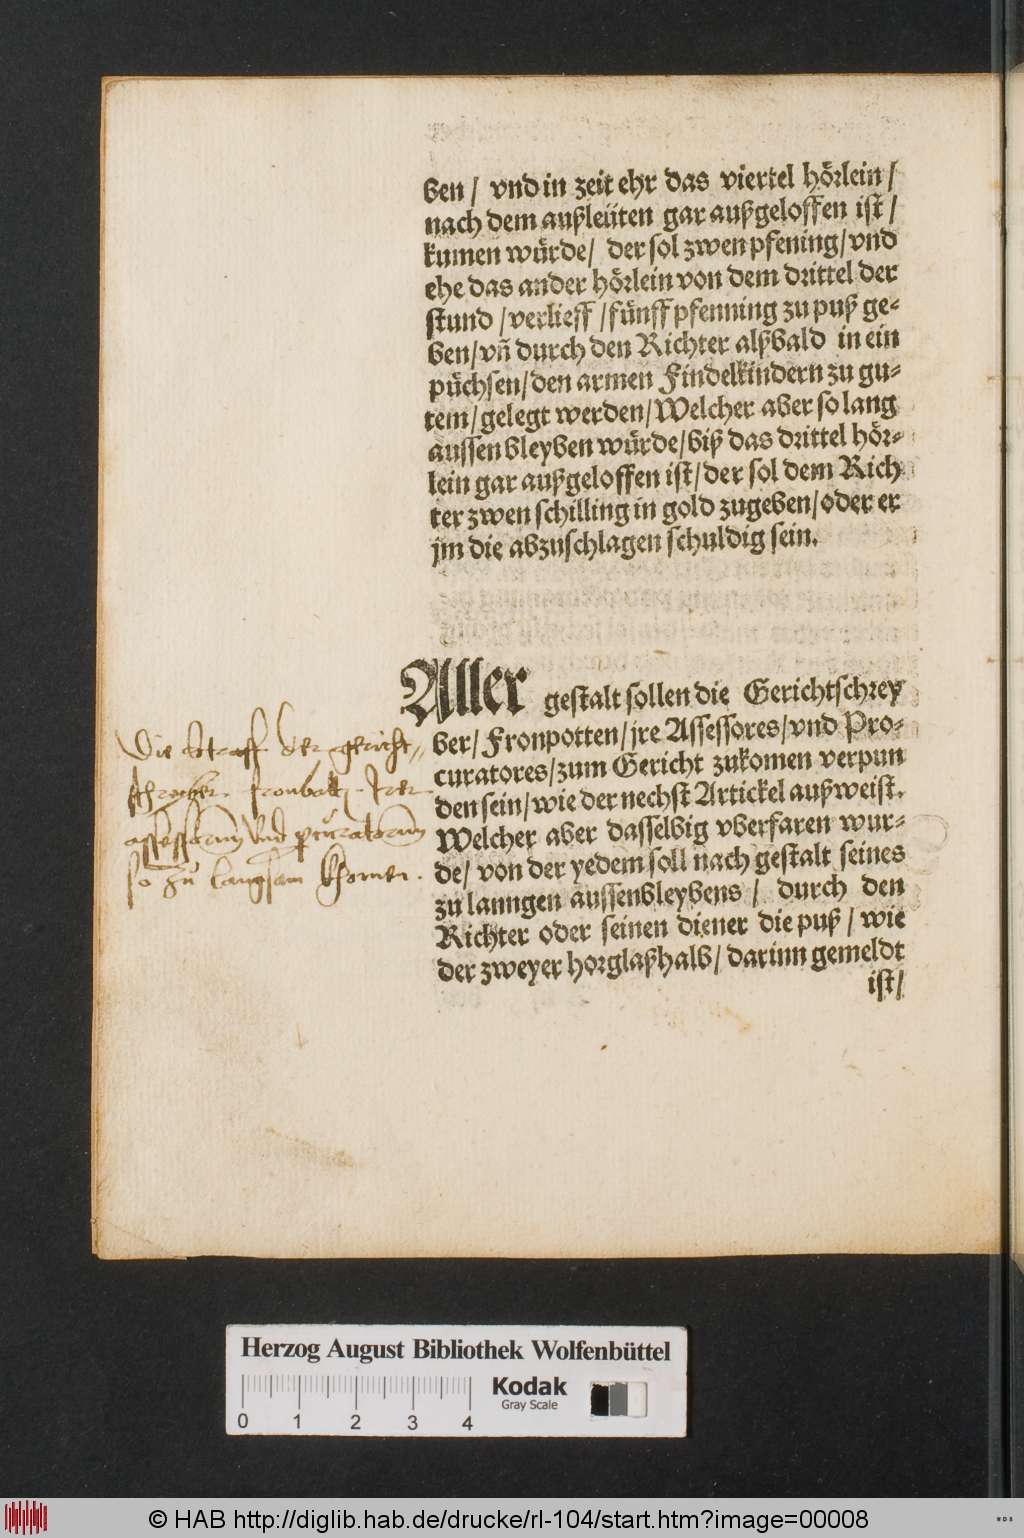 ben / vnd in zeit ehr das viertel hörlein /
nach dem außleüten gar außgeloffen ist /
kumen würde / der sol zwen pfening / vnd
ehe das ander hörlein von dem drittel der
stund / verlieff / fünff pfenning zu puß ge-
ben / vñ durch den Richter alßbald in ein
püchsen / den armen Findelkindern zu gu-
tem / gelegt werden / Welcher aber so lang
aussen bleyben würde / biß das drittel hör-
lein gar außgeloffen ist / der sol dem Rich
ter zwen schilling in gold zugeben / oder er
jm die abzuschlagen schuldig sein.
Aller gestalt sollen die Gerichtschrey
ber / Fronpotten / jre Assessores / vnd Pro-
curatores / zum Gericht zukomen verpun
den sein / wie der nechst Artickel außweist.
Welcher aber dasselbig vberfaren wur-
de / von der yedem soll nach gestalt seines
zu lanngen aussenbleybens / durch den
Richter oder seinen diener die puß / wie
der zweyer horglaßhalb / darinn gemeldt
ist /
Die Straff der gericht-
schreyber. fronbott. Irer
assessorum vnd procuratorum
so zu langsam khomen.
Herzog August Bibliothek Wolfenbüttel
Kodak
Gray Scale
0 1 2 3 4
© HAB http://diglib.hab.de/drucke/rl-104/start.htm?image=00008